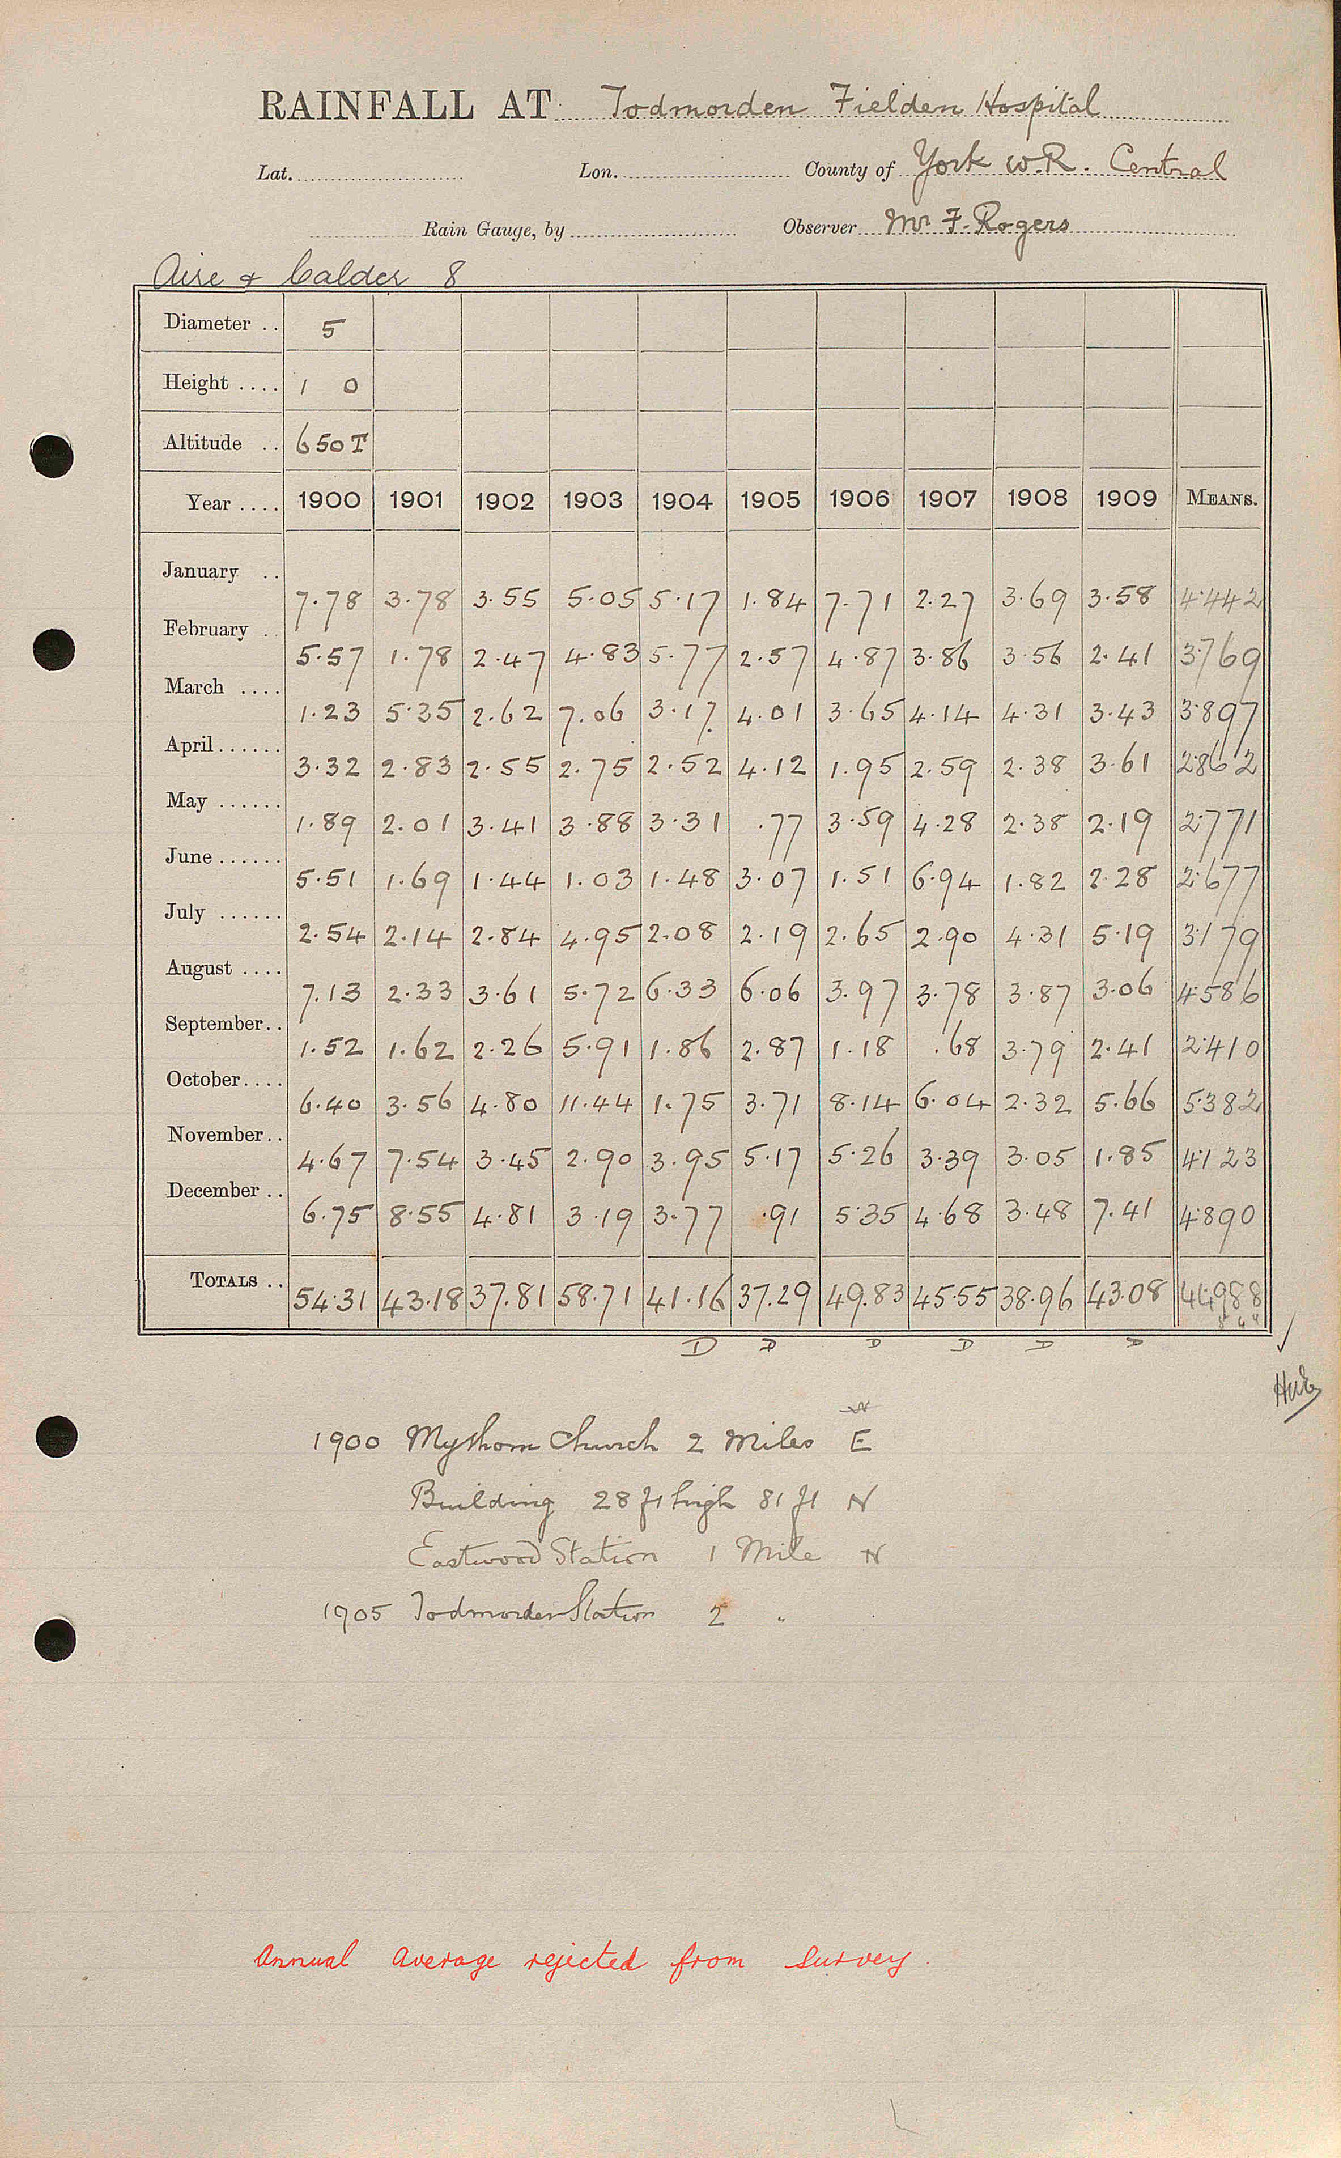 RAINFALL AT Todmorden Fielden Hospital
Lat. Lon. County of York W.R. Central
Rain Gauge, by Observer Mr F. Rogers
Aire & Calder 8
Diameter .. 5
Height .... 1 0
Altitude .. 650 T
Year .... 1900 1901 1902 1903 1904 1905 1906 1907 1908 1909 MEANS.
January .. 7.78 3.78 3.55 5.05 5.17 1.84 7.71 2.27 3.69 3.58 4.442
February .. 5.57 1.78 2.47 4.83 5.77 2.57 4.87 3.86 3.56 2.41 3.769
March .... 1.23 5.35 2.62 7.06 3.17 4.01 3.65 4.14 4.31 3.43 3.897
April ...... 3.32 2.83 2.55 2.75 2.52 4.12 1.95 2.59 2.38 3.61 2.862
May ...... 1.89 2.01 3.41 3.88 3.31 .77 3.59 4.28 2.38 2.19 2.771
June ...... 5.51 1.69 1.44 1.03 1.48 3.07 1.51 6.94 1.82 2.28 2.677
July ...... 2.54 2.14 2.84 4.95 2.08 2.19 2.65 2.90 4.31 5.19 3.179
August .... 7.13 2.33 3.61 5.72 6.33 6.06 3.97 3.78 3.87 3.06 4.586
September .. 1.52 1.62 2.26 5.91 1.86 2.87 1.18 .68 3.79 2.41 2.410
October .... 6.40 3.56 4.80 11.44 1.75 3.71 8.14 6.04 2.32 5.66 5.382
November .. 4.67 7.54 3.45 2.90 3.95 5.17 5.26 3.39 3.05 1.85 4.123
December .. 6.75 8.55 4.81 3.19 3.77 .91 5.35 4.68 3.48 7.41 4.890
TOTALS .. 54.31 43.18 37.81 58.71 41.16 37.29 49.83 45.55 38.96 43.08 44.988
D D D D D D
1900 Mytholm Church 2 Miles E
Building 28 ft high 81 ft N
Eastwood Station 1 Mile N
1905 Todmorden Station 2 "
Annual average rejected from Survey.